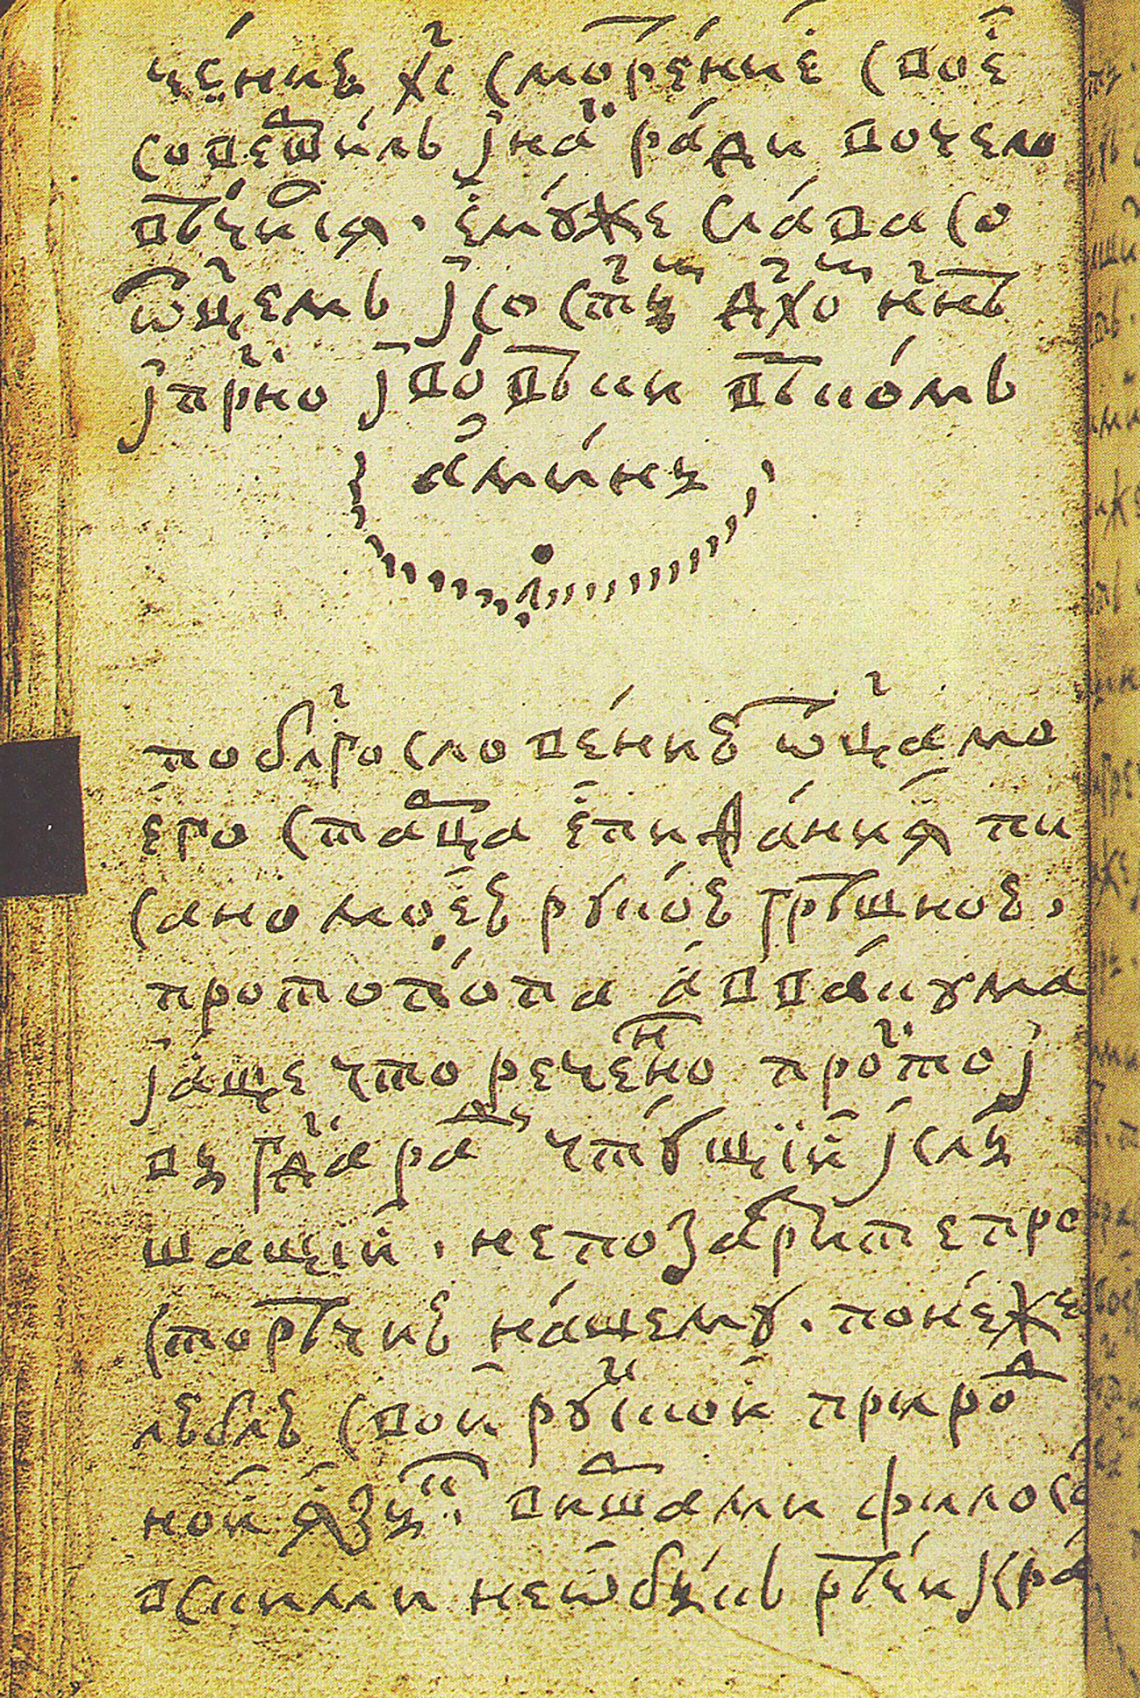 че́ние хс҃ смотре́ние своѐ
соверши́лъ і на́съ ра́ди вочело
вѣ́чеıся. ему́же сла́ва со
ѿце҃мъ і со ст҃ы́мъ дх҃омъ нн҃ѣ
і прⷭ҇но і во́ вѣки вѣко́мъ
ами́нь
по блг҃ослове́нию ѿца҃ мо
его̀ ста́рца епифа́ния пи
сано мое́ю руко́ю грѣшною,
протопо́па авваку́ма
і а́ще что рече́нно про́сто і
вы гдⷭ҇а ра́ди чту́щїи и слы
шащїи. не позазри́те про
сторѣ́чию на́шему. поне́же
люблю̀ свои̏ ру́скои приро́д
нои̏ язы́къ. виршами филосо́
вскими не ѡбы́къ рѣ́чи кра